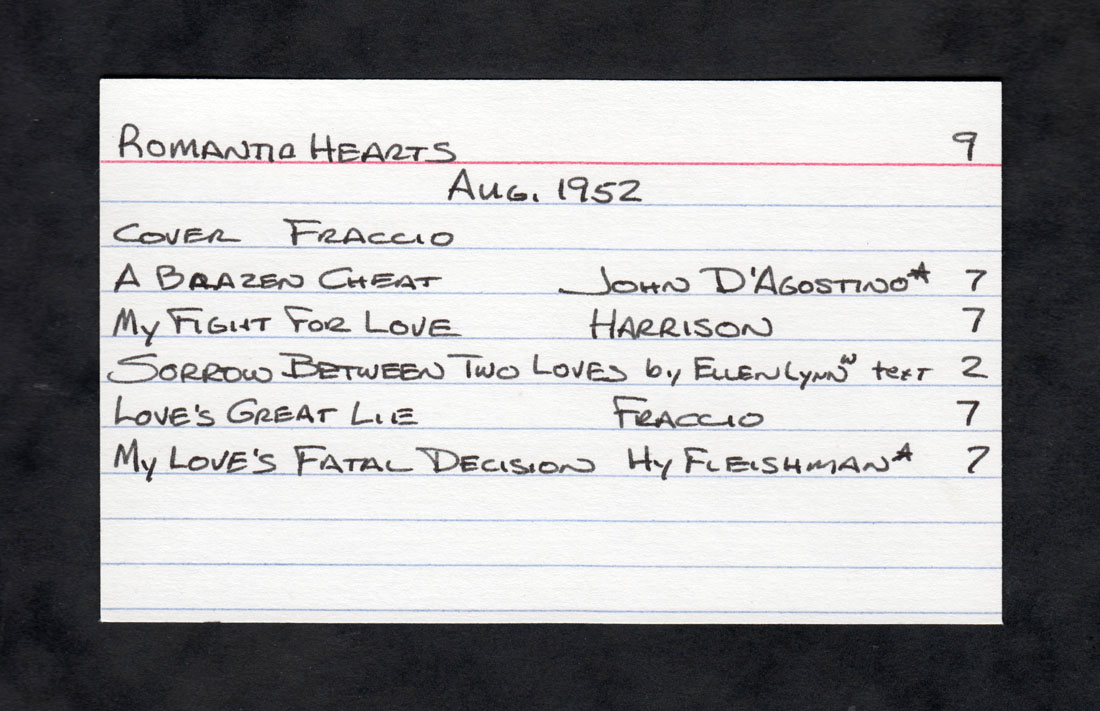 Romantic Hearts 9
Aug. 1952
Cover Fraccio
A Brazen Cheat John D'Agostino* 7
My Fight For Love Harrison 7
Sorrow Between Two Loves by Ellen Lynn w text 2
Love's Great Lie Fraccio 7
My Love's Fatal Decision Hy Fleishman* 7